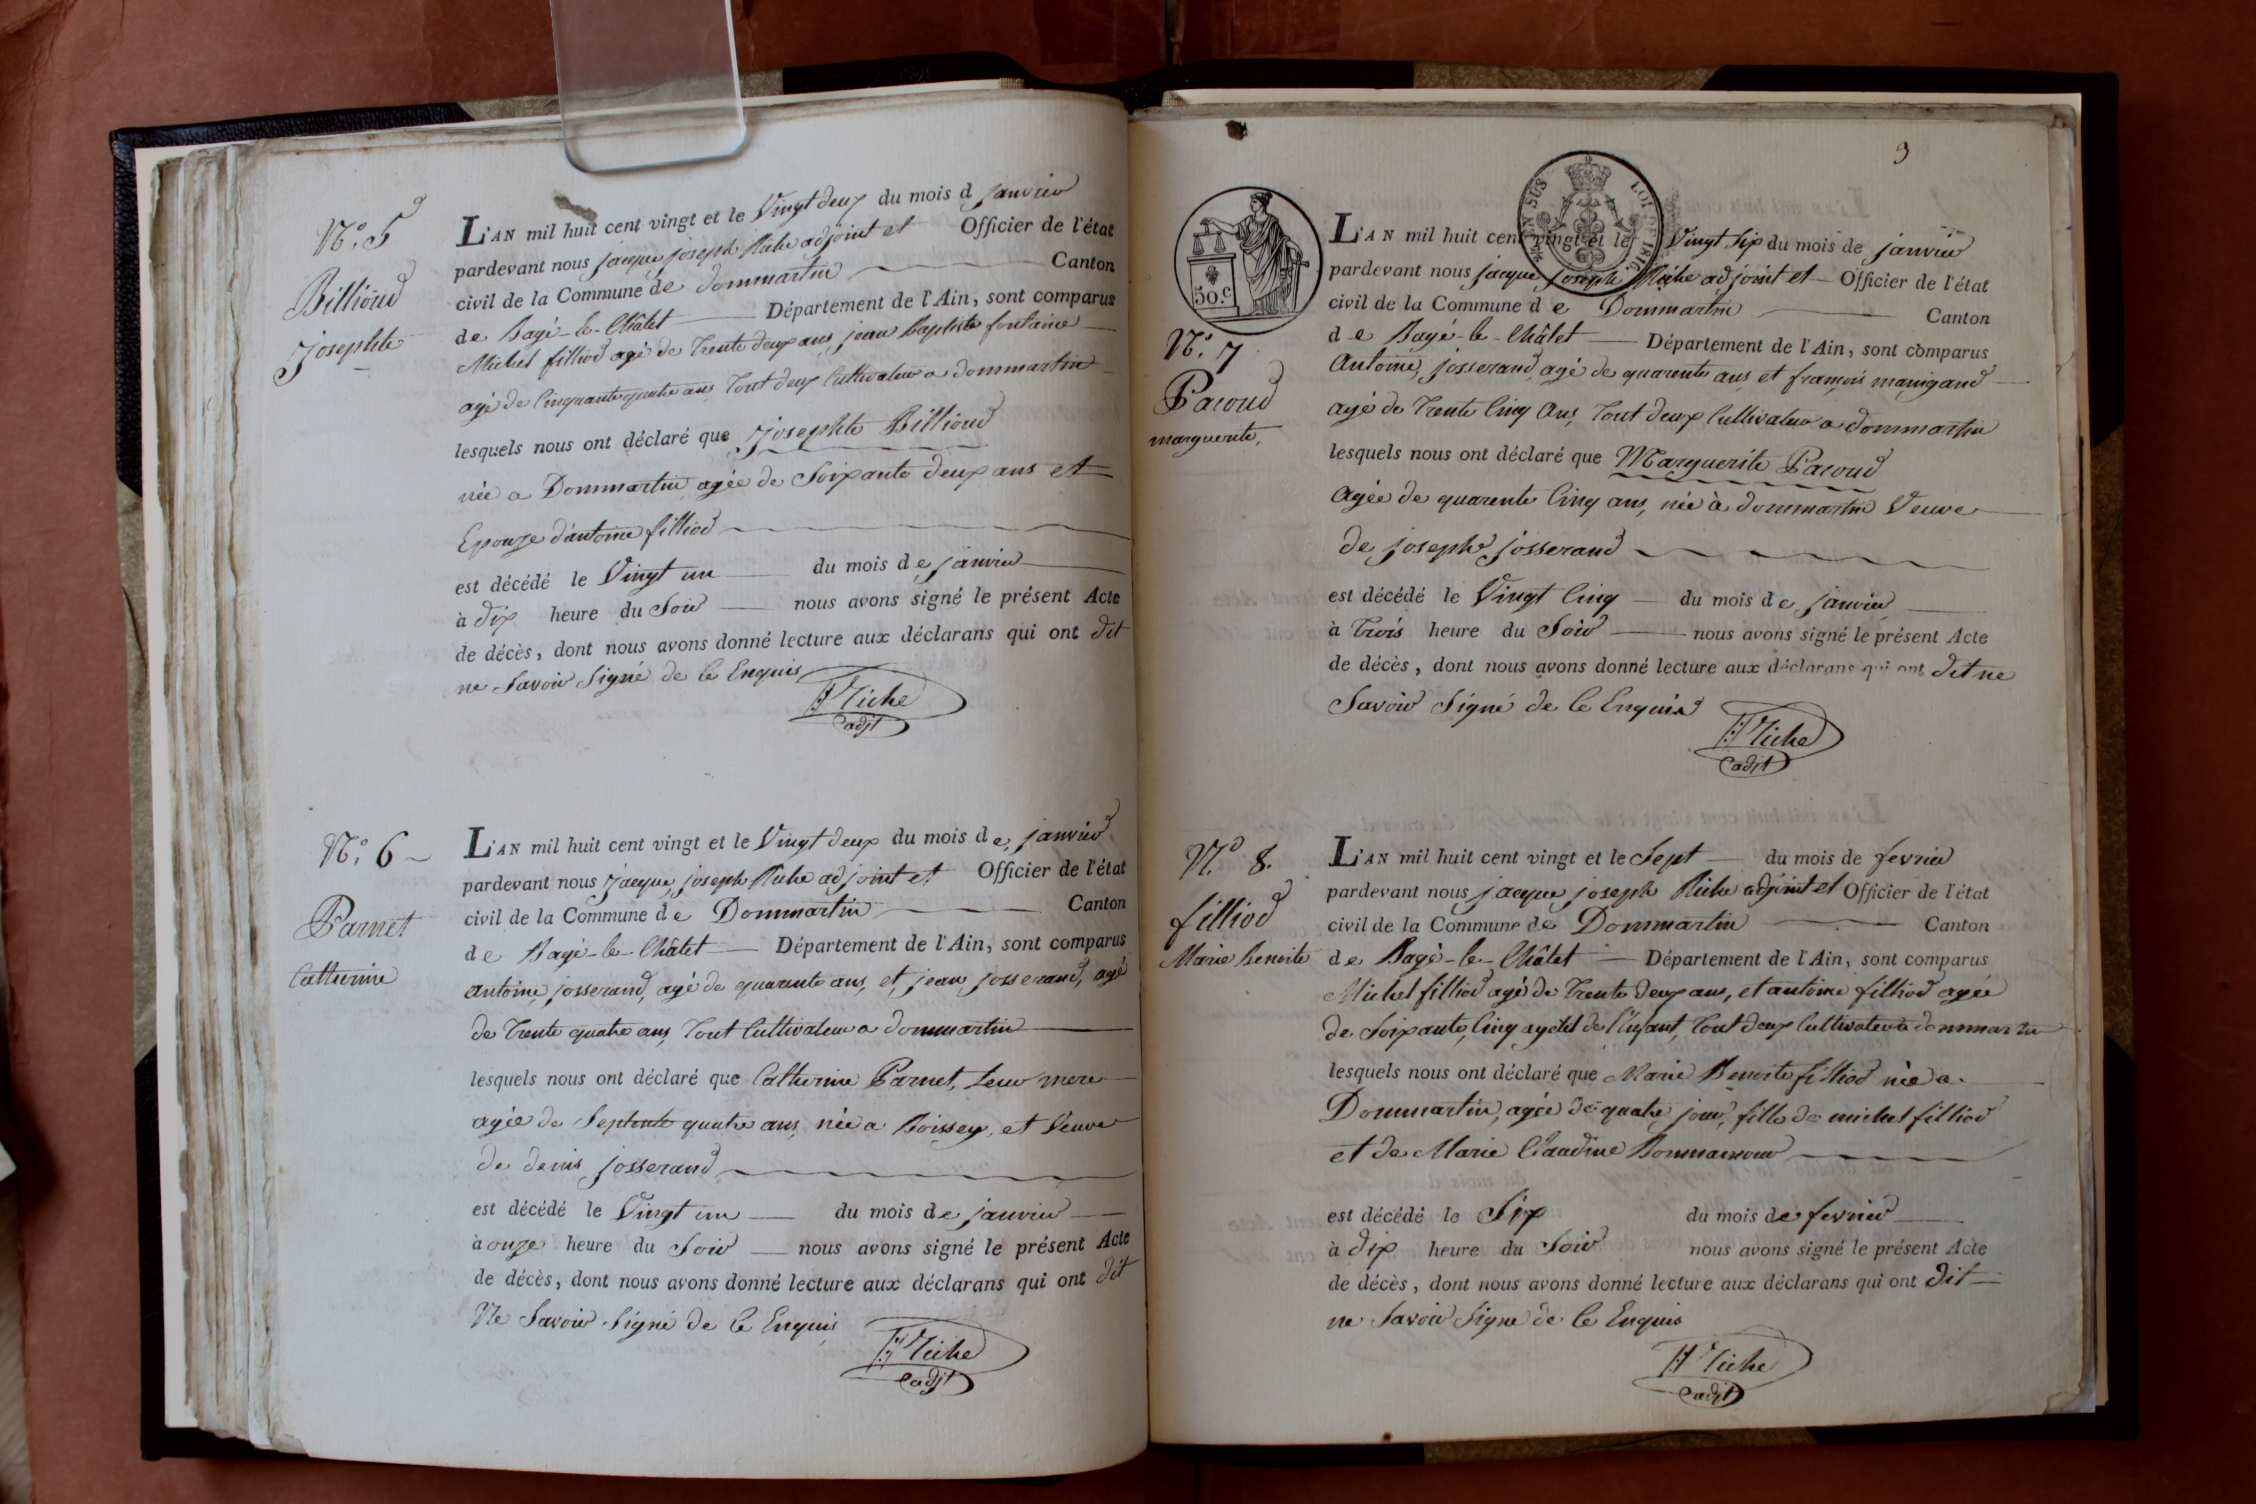 N.o 5
Billioud
Josephte
L'AN mil huit cent vingt et le Vingt deux du mois d janvier
pardevant nous jacque joseph Riche adjoint et Officier de l'état
civil de la Commune de dommartin Canton
de Bagé-le-Châtel Département de l'Ain, sont comparus
Michel filliod agé de trente deux ans, jean baptiste fontaine
agé de Cinquante quatre ans, tout deux Cultivateur a dommartin
lesquels nous ont déclaré que Josephte Billioud
née a Dommartin agée de Soixante deux ans et
Epouze d'antoine filliod
est décédé le Vingt un du mois de janvier
à dix heure du Soir nous avons signé le présent Acte
de décès, dont nous avons donné lecture aux déclarans qui ont dit
ne Savoir Signé de Ce Enquis
Riche
adjt
N.o 6
Parnet
Catherine
L'AN mil huit cent vingt et le Vingt deux du mois de janvier
pardevant nous Jacque joseph Riche adjoint et Officier de l'état
civil de la Commune de Dommartin Canton
de Bagé-le-Châtel Département de l'Ain, sont comparus
antoine josserand, agé de quarente ans, et, jean josserand, agé
de trente quatre ans, tout Cultivateur a dommartin
lesquels nous ont déclaré que Catherine Parnet, Leur mere
agée de Septente quatre ans, née a Boissey, et Veuve
de denis josserand
est décédé le Vingt un du mois de janvier
à onze heure du Soir nous avons signé le présent Acte
de décès, dont nous avons donné lecture aux déclarans qui ont dit
Ne Savoir Signé de Ce Enquis
Riche
adjt
9
EN SUS
LOI DE 1816
50.c
N.o 7
Pacoud
marguerite,
L'AN mil huit cent vingt et le Vingt Six du mois de janvier
pardevant nous jacque joseph Riche adjoint et Officier de l'état
civil de la Commune de Dommartin Canton
de Bagé-le-Châtel Département de l'Ain, sont comparus
Antoine, josserand, agé de quarente ans, et françois manigand
agé de trente Cinq Ans, tout deux Cultivateur a dommartin
lesquels nous ont déclaré que Marguerite Pacoud
agée de quarente Cinq ans, née à dommartin Veuve
de joseph josserand
est décédé le Vingt Cinq du mois de janvier
à trois heure du Soir nous avons signé le présent Acte
de décès, dont nous avons donné lecture aux déclarans qui ont dit ne
Savoir Signé de Ce Enquis
Riche
adjt
N.o 8.
filliod
Marie benoite
L'AN mil huit cent vingt et le Sept du mois de fevrier
pardevant nous jacque joseph Riche adjoint et Officier de l'état
civil de la Commune de Dommartin Canton
de Bagé-le-Châtel Département de l'Ain, sont comparus
Michel filliod agé de trente deux ans, et antoine filliod agée
de Soixante, Cinq ayeul de l'enfant, tout deux Cultivateur a dommartin
lesquels nous ont déclaré que Marie Benoite filliod née a
Dommartin, agée de quatre jour, fille de michel filliod
et de Marie Claudine
est décédé le Six du mois de fevrier
à dix heure du Soir nous avons signé le présent Acte
de décès, dont nous avons donné lecture aux déclarans qui ont dit
ne Savoir Signe de Ce Enquis
Riche
adjt